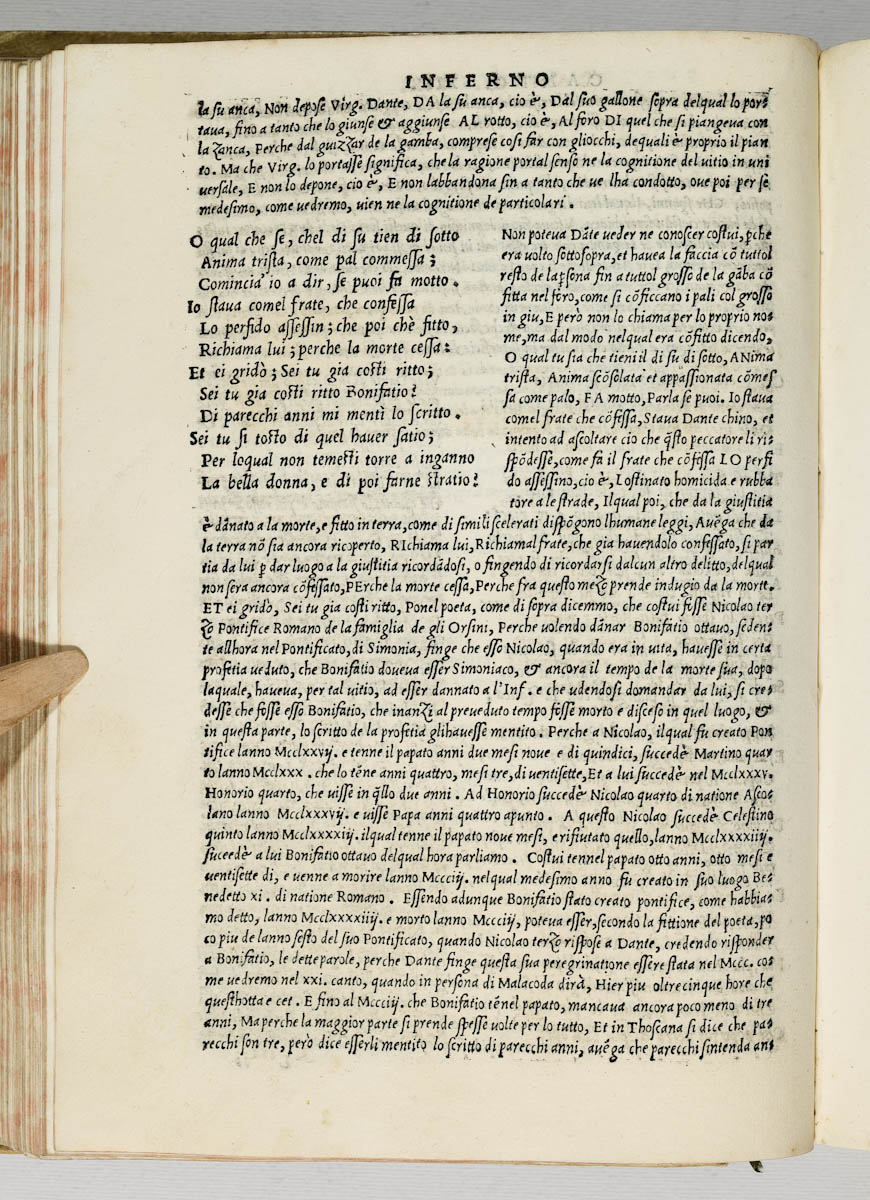 INFERNO
la su anca, Non depose Virg. Dante, DA la su anca, cio è, Dal suo gallone sopra delqual lo por=
taua, fino a tanto che lo giunse & aggiunse AL rotto, cio è, Al foro DI quel che si piangeua con
la zanca, Perche dal guizzar de la gamba, comprese cosi far con gliocchi, dequali è proprio il pian
to. Ma che Virg. lo portasse significa, che la ragione portal senso ne la cognitione del uitio in uni
uersale, E non lo depone, cio è, E non labbandona fin a tanto che ue lha condotto, oue poi per se
medesimo, come uedremo, uien ne la cognitione de particolari.
O qual che se, chel di su tien di sotto
Anima trista, come pal commessa;
Comincia' io a dir, se puoi fa motto.
Io staua comel frate, che confessa
Lo perfido assessin; che poi chè fitto,
Richiama lui; perche la morte cessa:
Et ei gridò; Sei tu gia costì ritto;
Sei tu gia costì ritto Bonifatio?
Di parecchi anni mi mentì lo scritto.
Sei tu si tosto di quel hauer satio;
Per loqual non temesti torre a inganno
La bella donna, e di poi farne stratio?
Non poteua Dãte ueder ne conoscer costui, ꝑche
era uolto sottosopra, et hauea la faccia cõ tuttol
resto de la ꝑsona fin a tuttol grosso de la gãba cõ
fitta nel foro, come si cõficcano i pali col grosso
in giu, E però non lo chiama per lo proprio no=
me, ma dal modo nelqual era cõfitto dicendo,
O qual tu sia che tieni il di su di sotto, ANima
trista, Anima scõsolata et appassionata cõmes
sa come palo, FA motto, Parla se puoi. Io staua
comel frate che cõfessa, Staua Dante chino, et
intento ad ascoltare cio che q̃sto peccatore li ri=
spõdesse, come fa il frate che cõfessa LO perfi
do assessino, cio è, Lostinato homicida e rubba
tore a le strade, Ilqual poi, che da la giustitia
è dãnato a la morte, e fitto in terra, come di simili scelerati dispõgono lhumane leggi, Auẽga che da
la terra nõ sia ancora ricoperto, RIchiama lui, Richiamal frate, che gia hauendolo confessato, si par
tia da lui ꝑ dar luogo a la giustitia ricordãdosi, o fingendo di ricordarsi dalcun altro delitto, delqual
non sera ancora cõfessato, PErche la morte cessa, Perche fra questo mezo prende indugio da la morte.
ET ei gridò, Sei tu gia costì ritto, Ponel poeta, come di sopra dicemmo, che costui fosse Nicolao ter
zo Pontifice Romano de la famiglia de gli Orsini, Perche uolendo dãnar Bonifatio ottauo, seden=
te allhora nel Pontificato, di Simonia, finge che esso Nicolao, quando era in uita, hauesse in certa
profetia ueduto, che Bonifatio doueua esser Simoniaco, & ancora il tempo de la morte sua, dopo
laquale, haueua, per tal uitio, ad esser dannato a l'Inf. e che udendosi domandar da lui, si cre=
desse che fosse esso Bonifatio, che inanzi al preueduto tempo fosse morto e disceso in quel luogo, &
in questa parte, lo scritto de la profetia glihauesse mentito. Perche a Nicolao, ilqual fu creato Pon
tifice lanno Mcclxxvij. e tenne il papato anni due mesi noue e di quindici, succedè Martino quar
to lanno Mcclxxx. che lo tẽne anni quattro, mesi tre, di uentisette, Et a lui succedè nel Mcclxxxv.
Honorio quarto, che uisse in q̃llo due anni. Ad Honorio succedè Nicolao quarto di natione Asco=
lano lanno Mcclxxxvij. e uisse Papa anni quattro apunto. A questo Nicolao succedè Celestino
quinto lanno Mcclxxxxiij. ilqual tenne il papato noue mesi, e rifiutato quello, lanno Mcclxxxxiiij.
succedè a lui Bonifatio ottauo delqual hora parliamo. Costui tennel papato otto anni, otto mesi e
uentisette di, e uenne a morire lanno Mccciij. nelqual medesimo anno fu creato in suo luogo Be=
nedetto xi. di natione Romano. Essendo adunque Bonifatio stato creato pontifice, come habbia=
mo detto, lanno Mcclxxxxiiij. e morto lanno Mccciij, poteua esser, secondo la fittione del poeta, po
co piu de lanno sesto del suo Pontificato, quando Nicolao terzo rispose a Dante, credendo risponder
a Bonifatio, le dette parole, perche Dante finge questa sua peregrinatione essere stata nel Mccc. co=
me uedremo nel xxi. canto, quando in persona di Malacoda dirà, Hier piu oltre cinque hore che
questhotta e cet. E fino al Mccciij. che Bonifatio tẽnel papato, mancaua ancora poco meno di tre
anni, Ma perche la maggior parte si prende spesse uolte per lo tutto, Et in Thoscana si dice che pa=
recchi son tre, però dice esserli mentito lo scritto di parecchi anni, auẽga che parecchi sintenda an=